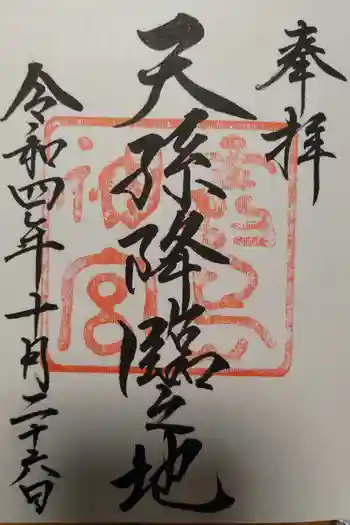 奉拝
天孫降臨之地
令和四年十月二十六日
神宮